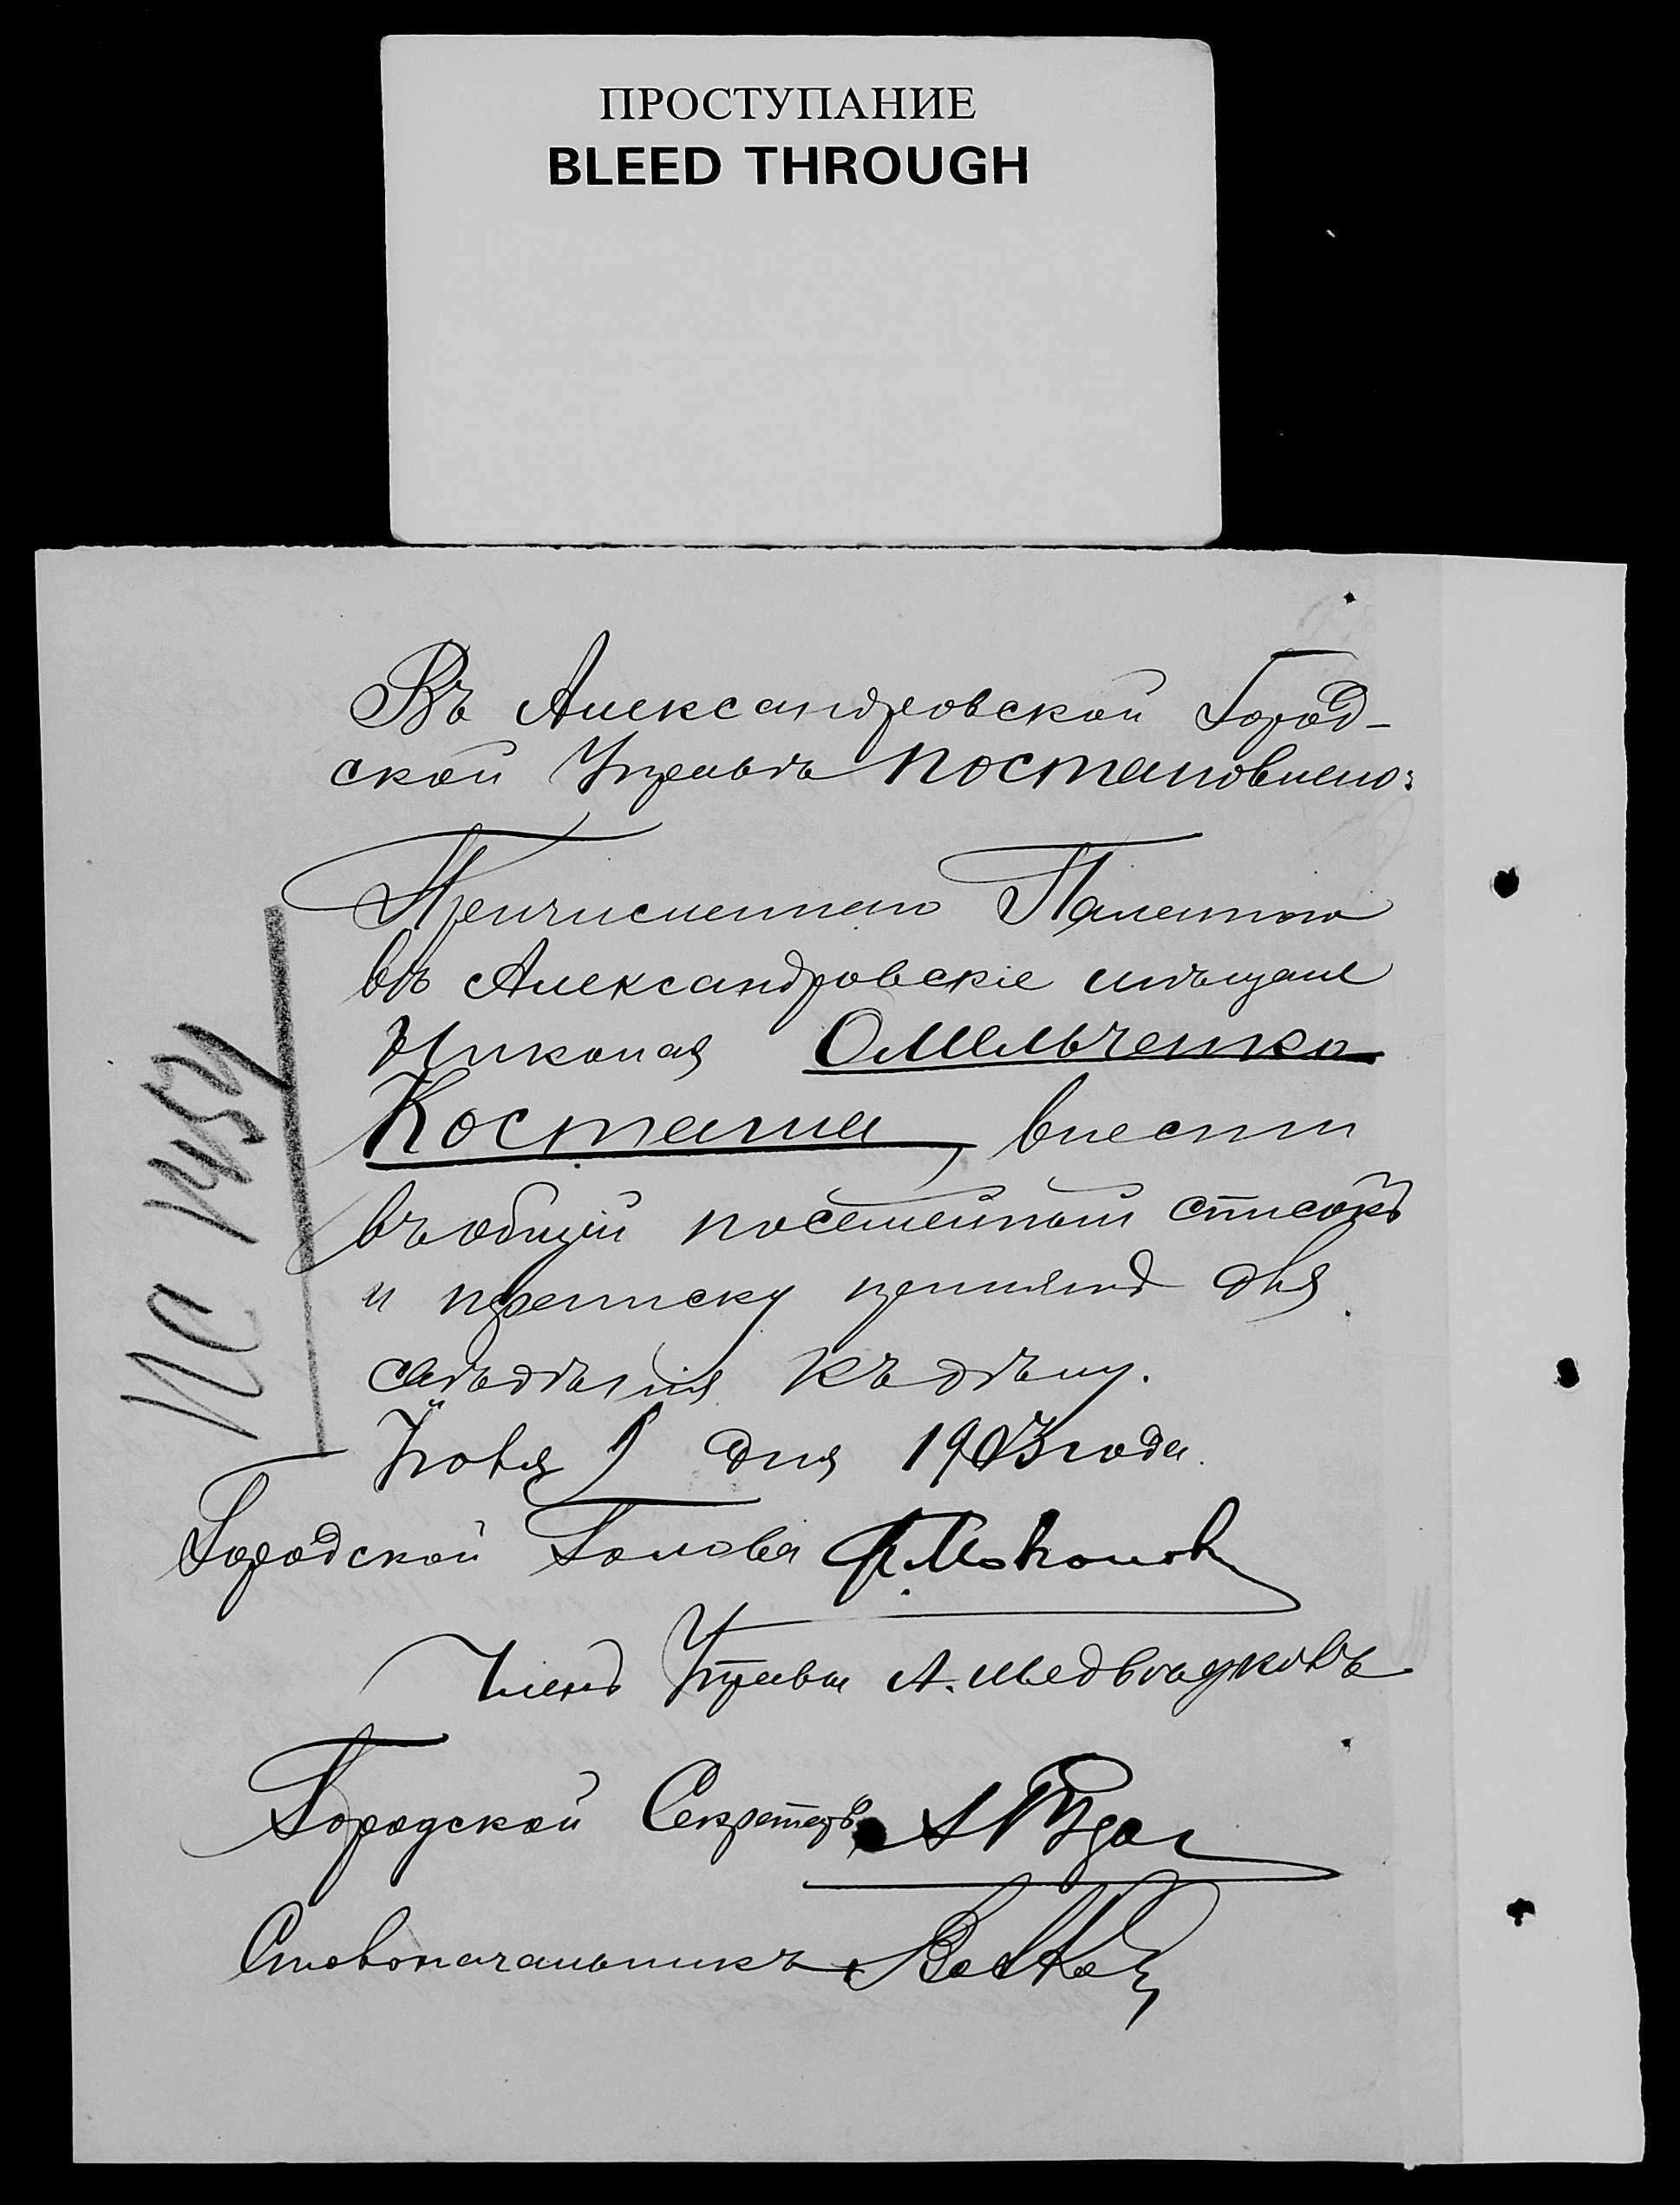 ПРОСТУПАНИЕ
BLEED THROUGH
Въ Александровской Город-
ской Управѣ постановлено:
Причисленнаго Палатою
въ Александровскіе мѣщане
Николая Омельченко
Костана, внести
въ общій посемейный списокъ
и переписку принять для
свѣдѣнія къ дѣлу.
Іюня 9 дня 1903 года.
Городской Голова
Членъ Управы А. Медвѣдковъ
Городской Секретарь
Столоначальникъ